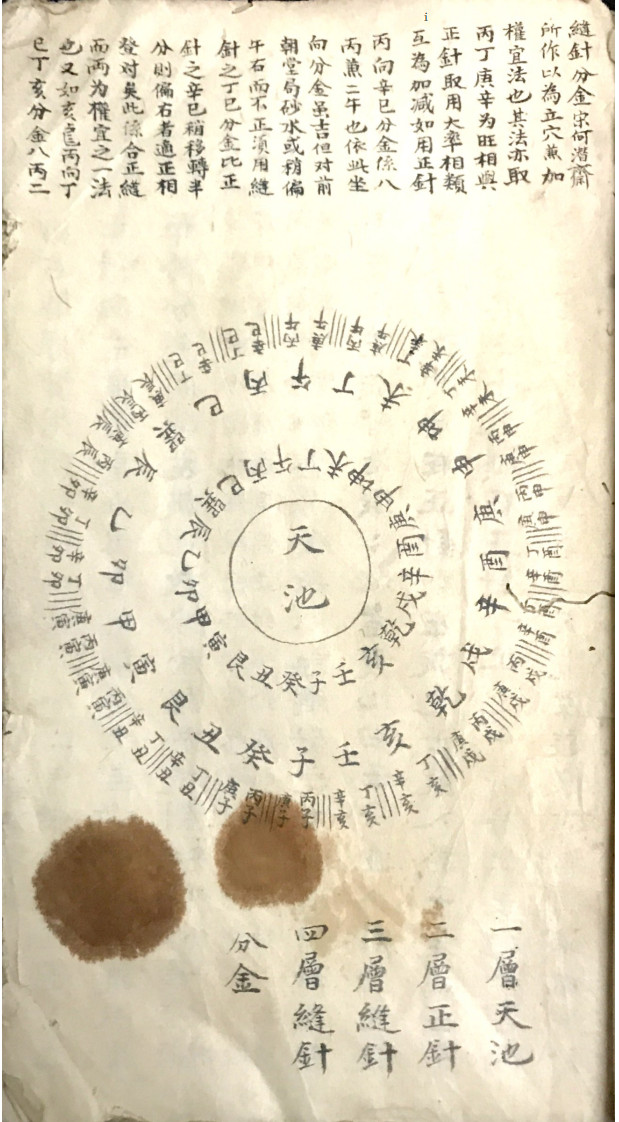 縫針分金宗何潛齋
所作以為立穴兼加
權宜法也其法亦取
丙丁庚辛为旺相與
正針取用大率相類
互為加减如用正針
丙向辛巳分金係八
丙兼二午也依此坐
向分金虽吉但对前
朝堂局砂水或稍偏
午右而不正須用縫
針之丁巳分金比正
針之辛巳稍移轉半
分則偏右者適正相
登对矣此係合正縫
而两為權宜之一法
也又如亥龍丙向丁
巳丁亥分金八丙二
天池
壬子癸丑艮寅甲卯乙辰巽巳丙午丁未坤申庚酉辛戌乾亥
壬子癸丑艮寅甲卯乙辰巽巳丙午丁未坤申庚酉辛戌乾亥
丙子庚子丙子庚子丁丑辛丑丁丑辛丑丙寅庚寅丙寅庚寅丁卯辛卯丁卯辛卯丙辰庚辰丙辰庚辰丁巳辛巳丁巳辛巳丙午庚午丙午庚午丁未辛未丁未辛未丙申庚申丙申庚申丁酉辛酉丁酉辛酉丙戌庚戌丙戌庚戌丁亥辛亥丁亥辛亥
一層天池
二層正針
三層縫針
四層縫針
分金